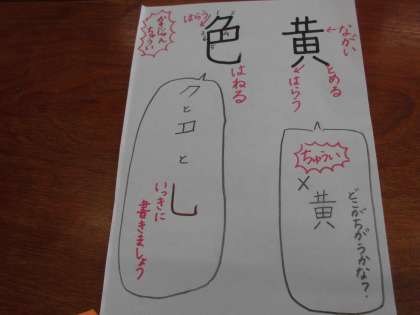 黄
ながい
とめる
はらう
ちゅうい
×
黄
どこがちがうかな?
色
はらう
はねる
ちゅうい
クとコと
し
いっきに
書きましょう